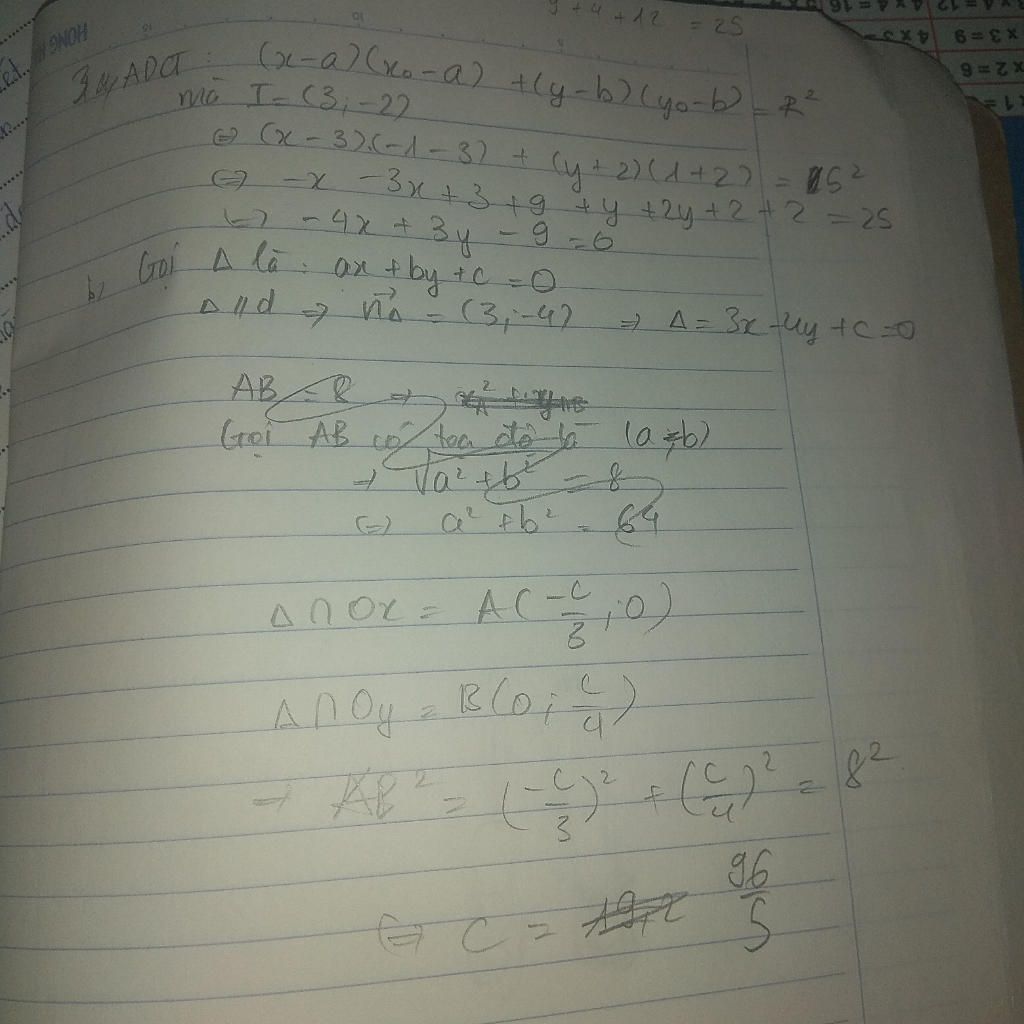 9 + 4 + 12 = 25
ADCT : (x-a)(x₀-a) + (y-b)(y₀-b) = R²
mà I = (3; -2)
⇔ (x-3)(-1-3) + (y+2)(1+2) = 5²
⇔ -x - 3x + 3 + 9 + y + 2y + 2 + 2 = 25
⇔ - 4x + 3y - 9 = 0
b, Gọi Δ là : ax + by + c = 0
Δ // d ⇒ n⃗Δ = (3; -4) ⇒ Δ = 3x - 4y + c = 0
AB = 8 ⇒
Gọi AB có toạ độ là (a;b)
→ √a² + b² = 8
⇔ a² + b² = 64
Δ ∩ Ox = A(-c/3; 0)
Δ ∩ Oy = B(0; c/4)
→ AB² = (-c/3)² + (c/4)² = 8²
⇔ C = 19,2 96/5